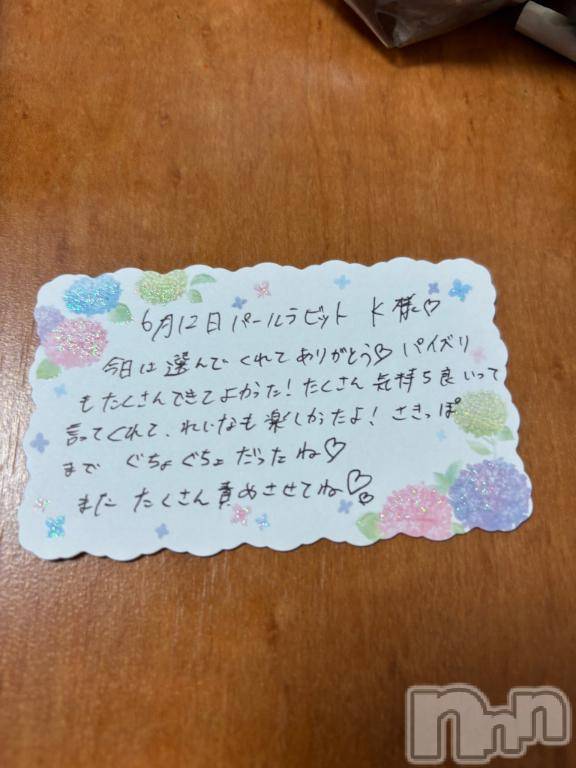 6月12日パールラビット K様♡
今日は選んでくれてありがとう♡ パイズリ
もたくさんできてよかった!たくさん気持ち良いって
言ってくれて、れいなも楽しかったよ! さきっぽ
まで ぐちょぐちょだったね♡
また たくさん責めさせてね♡♡
nnn